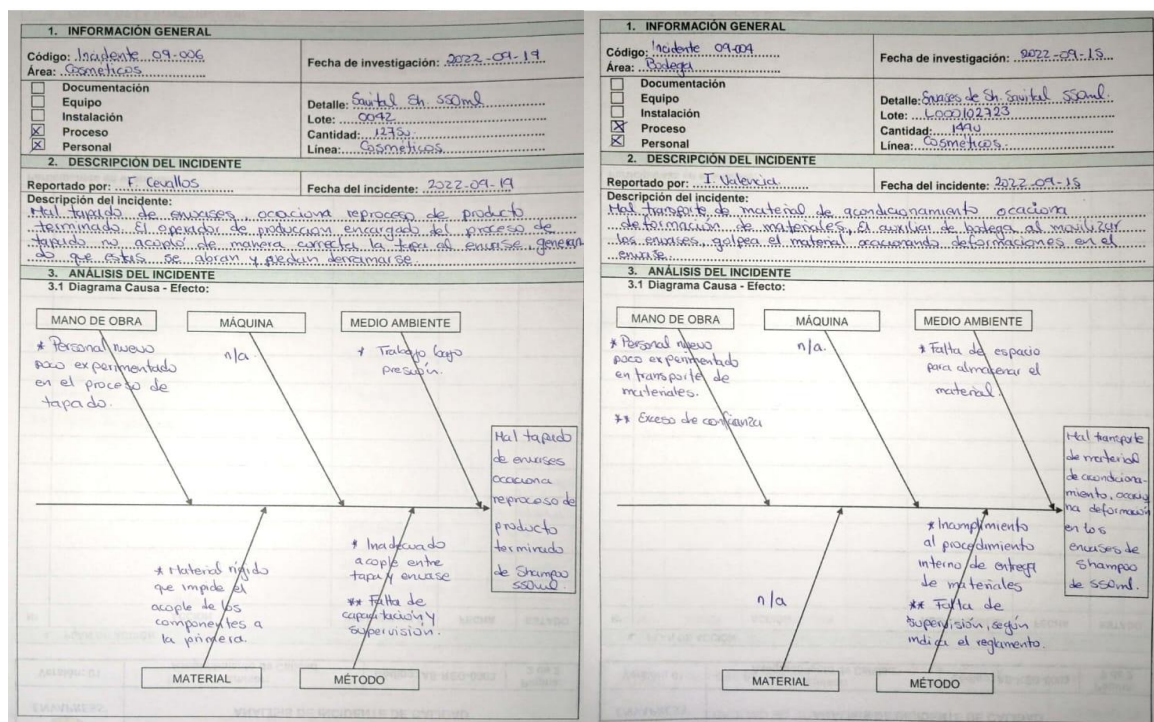 1. INFORMACIÓN GENERAL
Código: Incidente 09-006
Área: Cosméticos
Fecha de investigación: 2022-09-19
Documentación
Equipo
Instalación
Proceso
Personal
Detalle: Savital Sh. 550ml
Lote: 0042
Cantidad: 1275u
Línea: Cosméticos
2. DESCRIPCIÓN DEL INCIDENTE
Reportado por: F. Cevallos
Fecha del incidente: 2022-09-19
Descripción del incidente:
Mal tapado de envases, ocaciona reproceso de producto
terminado. El operador de producción encargado del proceso de
tapado no acopló de manera correcta la tapa al envase, generan
do que estas se abran y puedan derramarse
3. ANÁLISIS DEL INCIDENTE
3.1 Diagrama Causa - Efecto:
MANO DE OBRA
MÁQUINA
MEDIO AMBIENTE
* Personal nuevo
poco experimentado
en el proceso de
tapado.
n/a.
* Trabajo bajo
presión.
Mal tapado
de envases
ocaciona
reproceso de
producto
terminado
de Shampoo
550ml.
* Material rígido
que impide el
acople de los
componentes a
la primera.
* Inadecuado
acople entre
tapa y envase
** Falta de
capacitación y
supervisión.
MATERIAL
MÉTODO
1. INFORMACIÓN GENERAL
Código: Incidente 09-004
Área: Bodega
Fecha de investigación: 2022-09-15
Documentación
Equipo
Instalación
Proceso
Personal
Detalle: Envases de Sh. Savital 550ml.
Lote: L000102723
Cantidad: 144u
Línea: Cosméticos.
2. DESCRIPCIÓN DEL INCIDENTE
Reportado por: I. Valencia
Fecha del incidente: 2022-09-15
Descripción del incidente:
Mal transporte de material de acondicionamiento ocaciona
deformación de materiales, El auxiliar de bodega al movilizar
los envases, golpea el material ocacionando deformaciones en el
envase.
3. ANÁLISIS DEL INCIDENTE
3.1 Diagrama Causa - Efecto:
MANO DE OBRA
MÁQUINA
MEDIO AMBIENTE
* Personal nuevo
poco experimentado
en transporte de
materiales.
** Exceso de confianza
n/a.
* Falta de espacio
para almacenar el
material.
Mal transporte
de material
de acondiciona-
miento, ocacio
na deformación
en los
envases de
Shampoo
de 550ml.
n/a
* Incumplimiento
al procedimiento
interno de entrega
de materiales
** Falta de
supervisión, según
indica el reglamento.
MATERIAL
MÉTODO